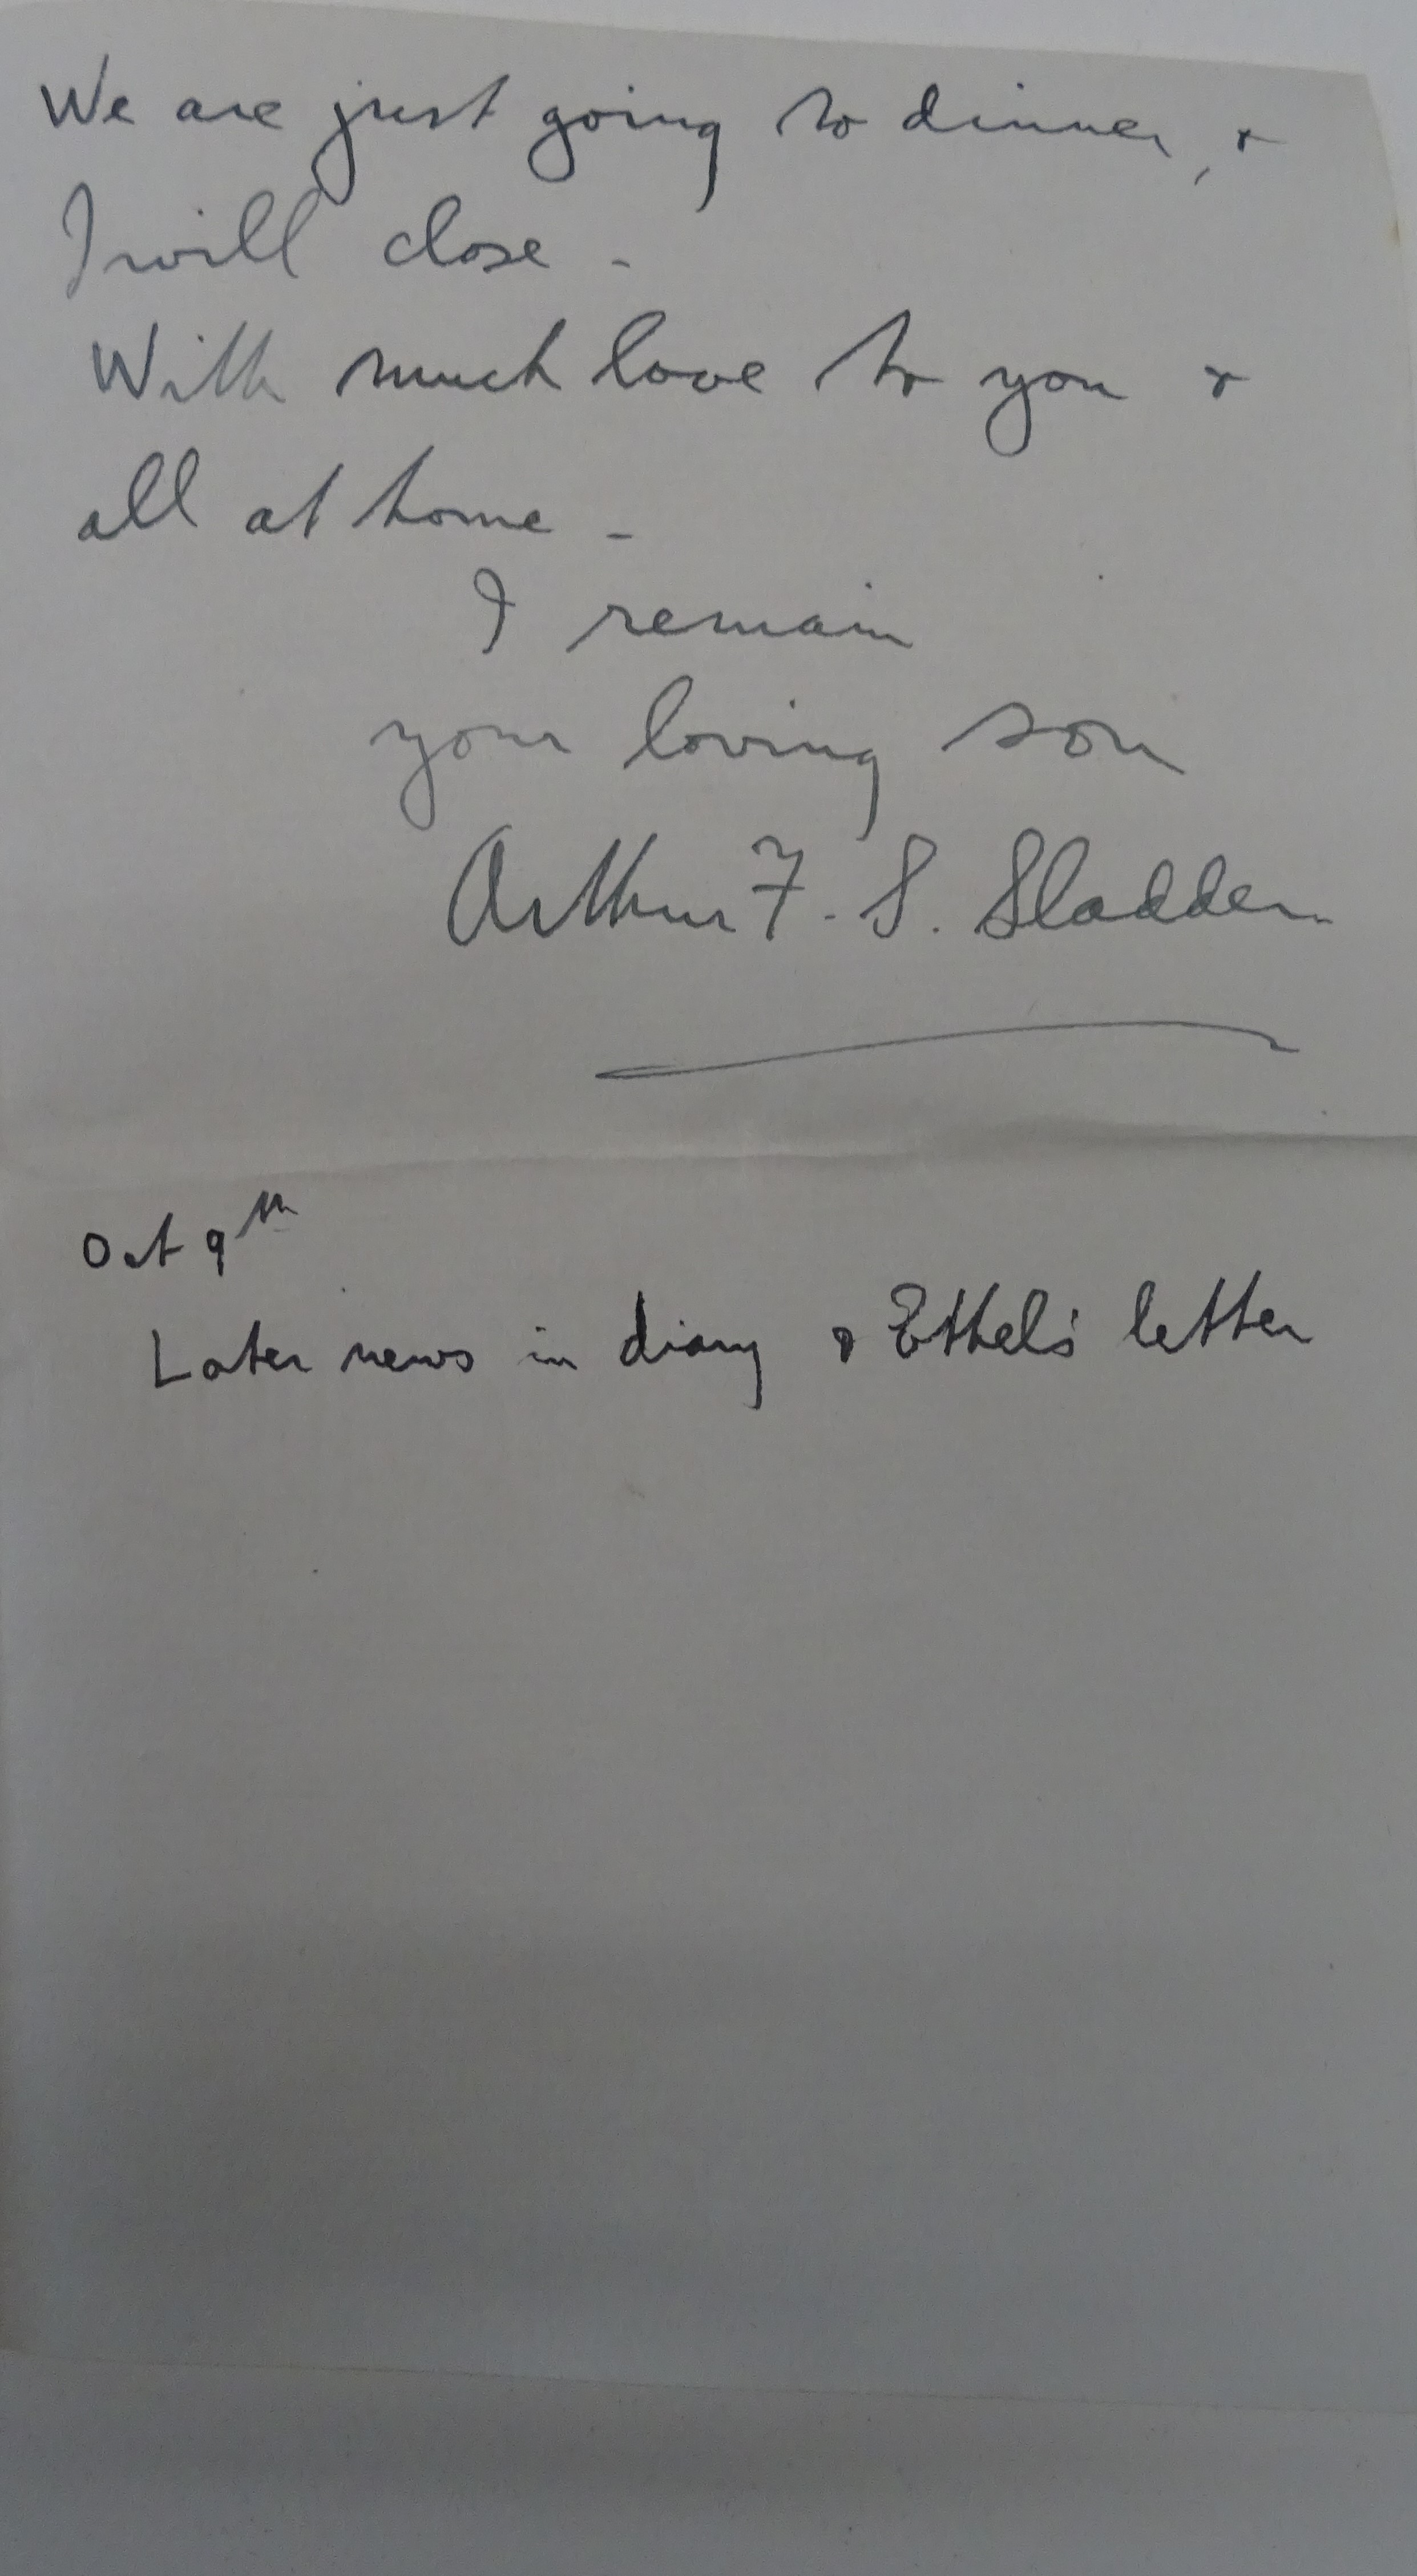 We are just going to dinner, &
I will close -
With much love to you &
all at home -
I remain
your loving son
Arthur F. S. Sladden
Oct 9th
Later news in diary & Ethel's letter